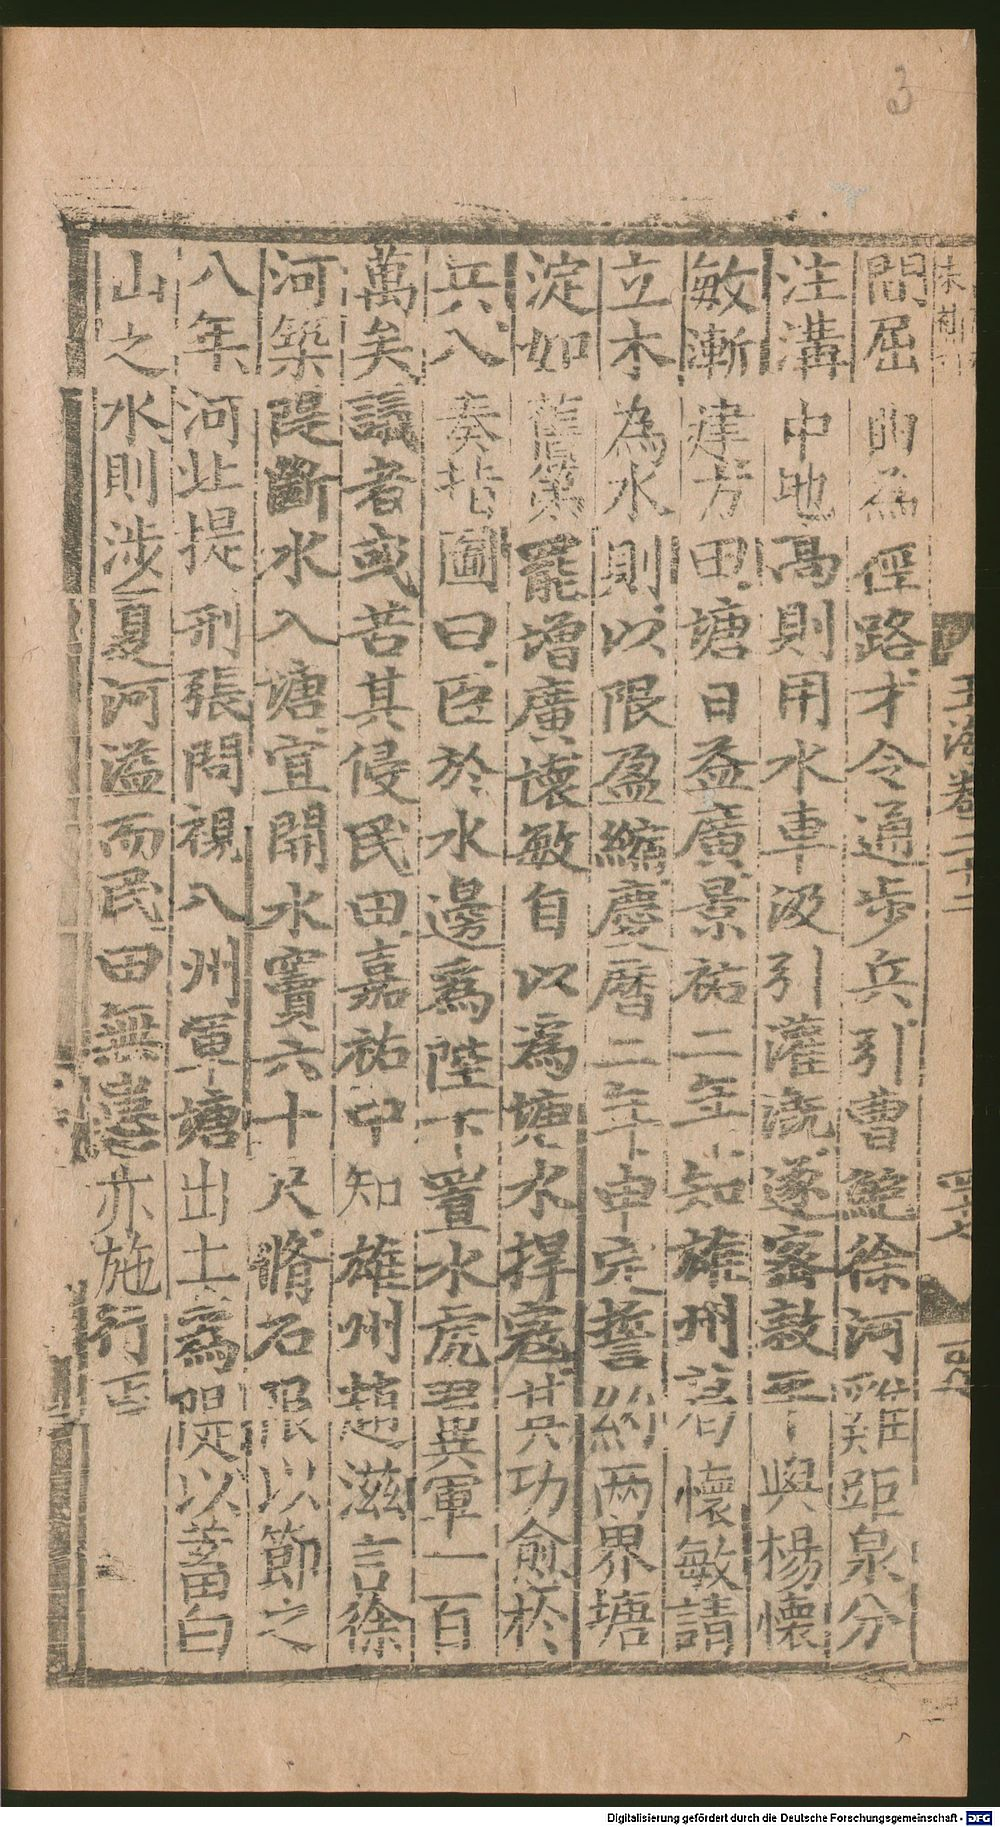 3
玉海卷二十二
四十七
間屈曲為徑路才令通步兵引曹鮑徐河雞距泉分
注溝中地高則用水車汲引灌漑遂密敕平與楊懷
敏漸建方田塘日益廣景祐二年知雄州葛懷敏請
立木為水則以限盈縮慶曆二年申完誓約两界塘
淀如舊罷增廣懷敏自以為塘水捍寇其功愈於
兵入奏指圖曰臣於水邊為陛下置水虎翼軍一百
萬矣議者或苦其侵民田嘉祐中知雄州趙滋言徐
河築隄斷水入塘宜開水竇六十尺脩石限以節之
八年河北提刑張問視八州軍塘出土為隄以蓄白
山之水則涉夏河溢而民田無患亦施行
Digitalisierung gefördert durch die Deutsche Forschungsgemeinschaft - DFG